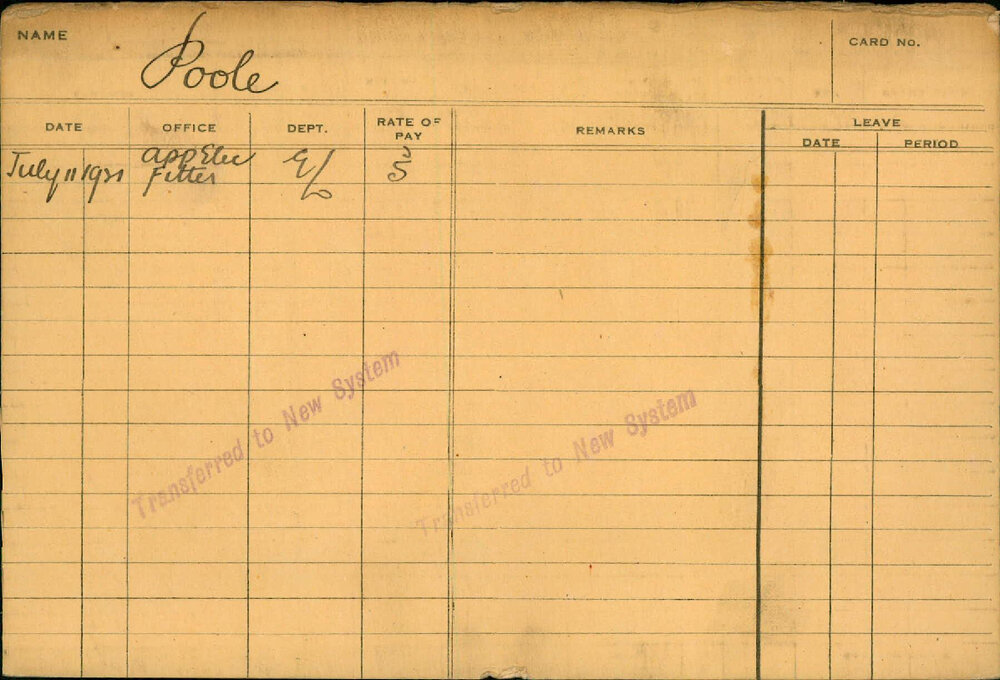 NAME
Poole
CARD No.
DATE OFFICE DEPT. RATE OF PAY REMARKS LEAVE
DATE PERIOD
July 11 1921 App Elec E/L 5
Fitter
Transferred to New System
Transferred to New System